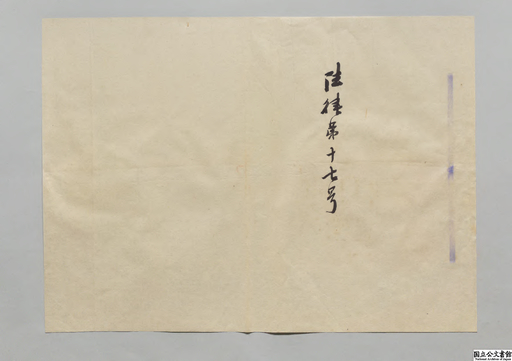 陸律第十七号
国立公文書館
National Archives of Japan